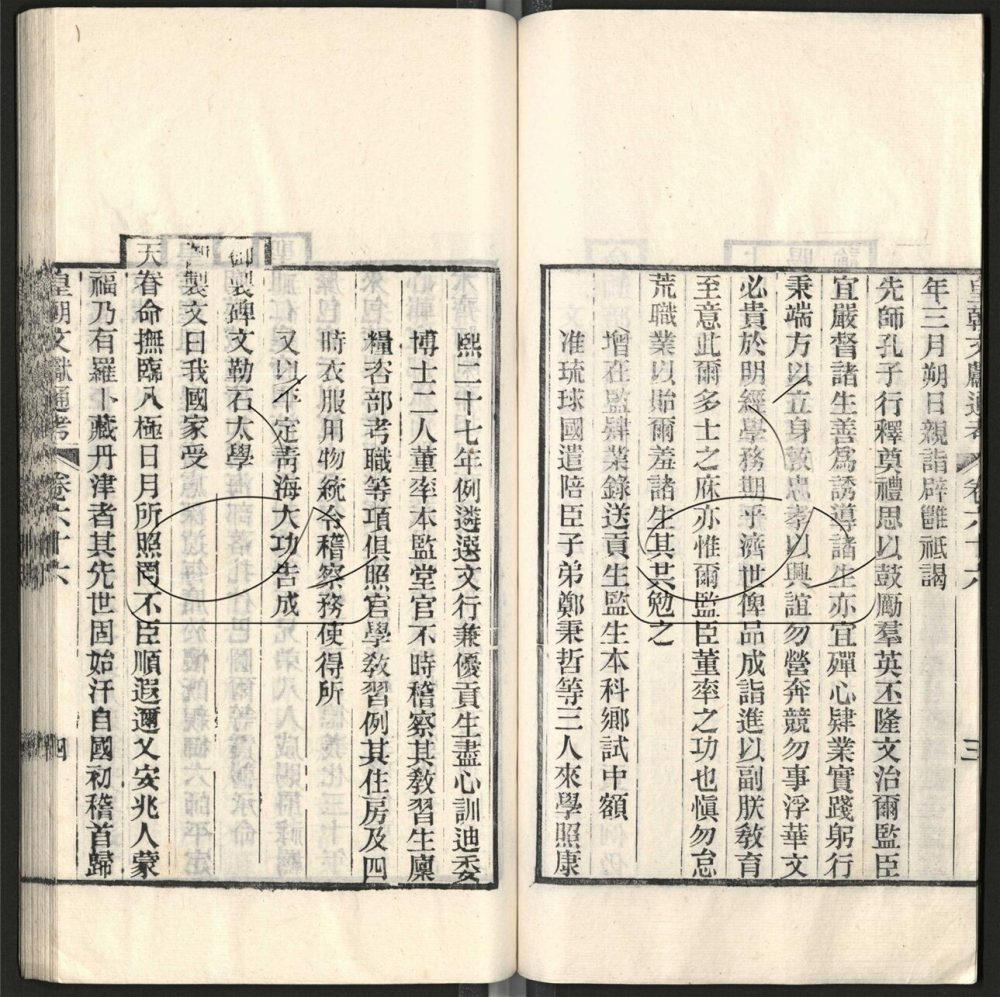 皇朝文獻通考 卷六十六 三
年三月朔日親詣辟雝祗謁
先師孔子行釋奠禮思以鼓勵羣英丕隆文治爾監臣
宜嚴督諸生善爲誘導諸生亦宜殫心肄業實踐躬行
秉端方以立身敦忠孝以興誼勿營奔競勿事浮華文
必貴於明經學務期乎濟世俾品成詣進以副朕敎育
至意此爾多士之庥亦惟爾監臣董率之功也愼勿怠
荒職業以貽爾羞諸生其共勉之
增在監肄業錄送貢生監生本科鄉試中額
准琉球國遣陪臣子弟鄭秉哲等三人來學照康
熙二十七年例遴選文行兼優貢生盡心訓迪委
博士二人董率本監堂官不時稽察其敎習生廩
糧咨部考職等項俱照官學敎習例其住房及四
時衣服用物統令稽察務使得所
又以平定靑海大功告成
御製碑文勒石太學
御製文曰我國家受
天眷命撫臨八極日月所照罔不臣順遐邇乂安兆人蒙
福乃有羅卜藏丹津者其先世固始汗自國初稽首歸
皇朝文獻通考 卷六十六 四